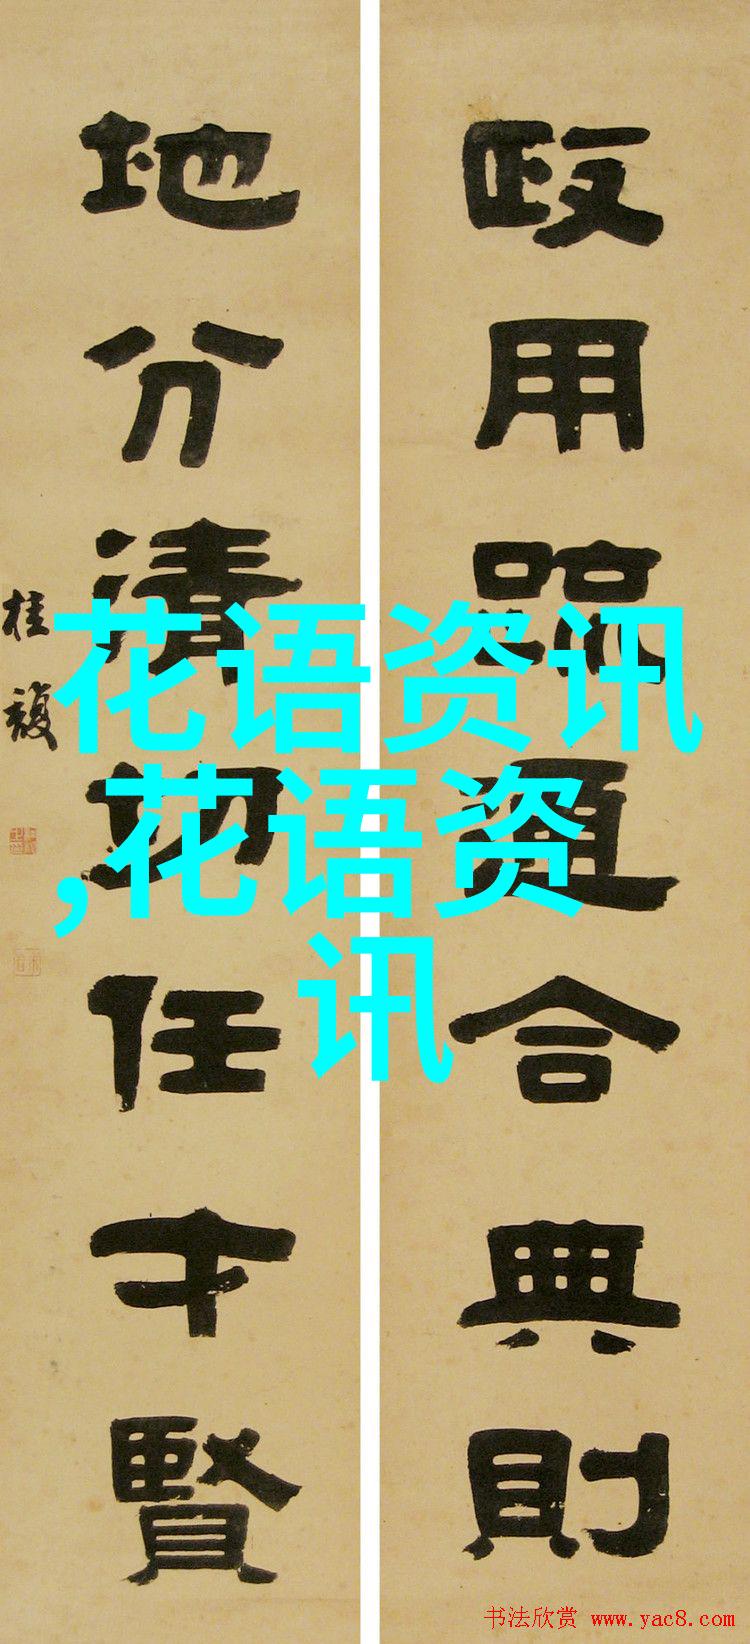 政用疏通合典則
地分清切任才賢
桂馥
花语资讯
,花语资
讯
书法欣赏 www.yac8.com